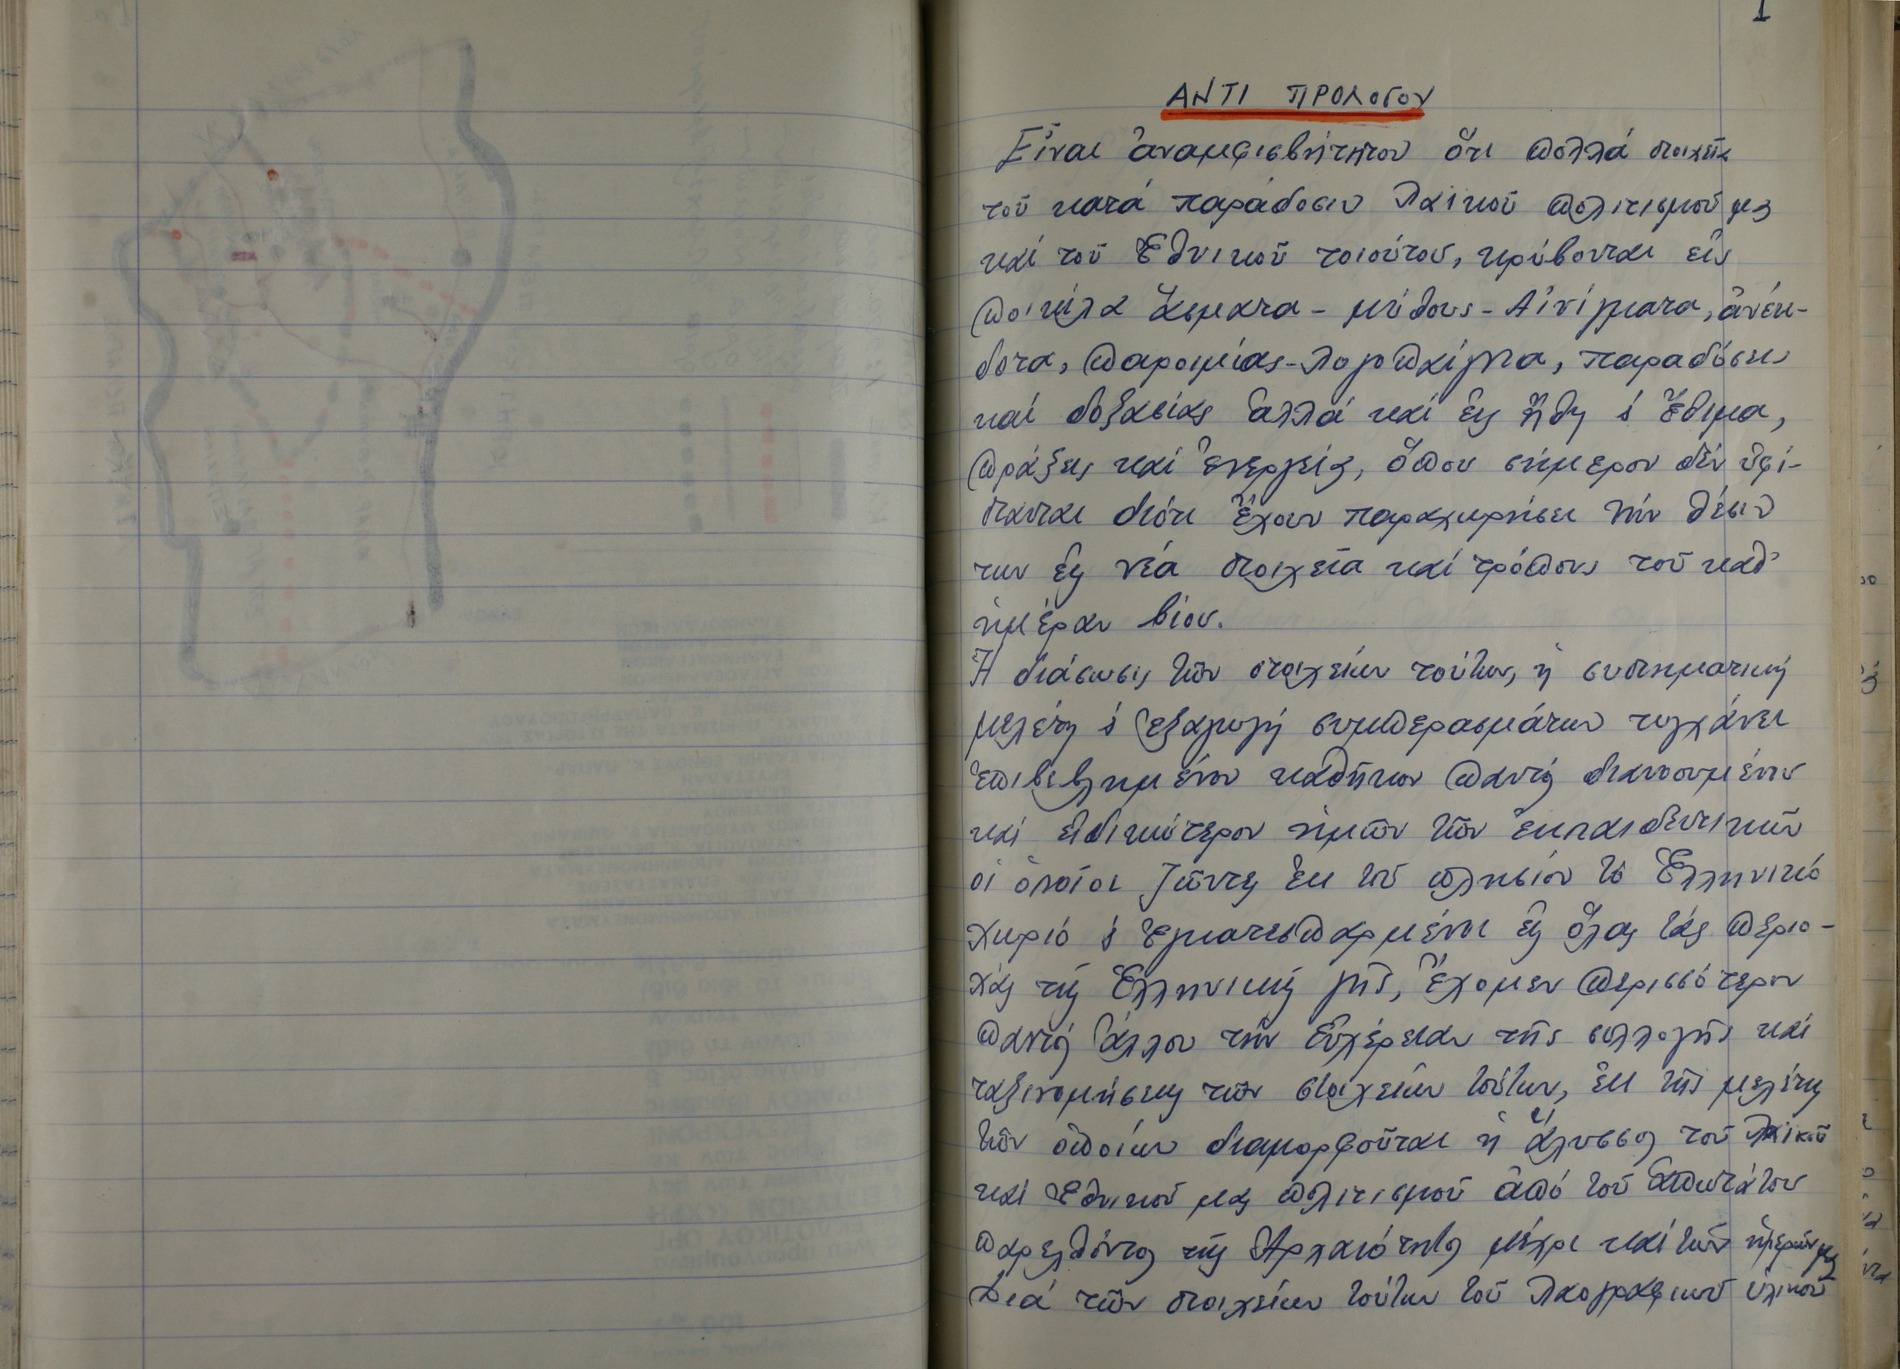 1
ΑΝΤΙ ΠΡΟΛΟΓΟΥ
Εἶναι ἀναμφισβήτητον ὅτι πολλά στοιχεῖα
τοῦ κατά παράδοσιν λαϊκοῦ πολιτισμοῦ μας
καί τοῦ Ἐθνικοῦ τοιούτου, κρύβονται εἰς
ποικίλα ἄσματα - μύθους - Αἰνίγματα, ἀνέκ-
δοτα, παροιμίας - λογοπαίγνια, παραδόσεις
καί δοξασίας ἀλλά καί εἰς ἤθη & ἔθιμα,
πράξεις καί ἐνεργείας, ὅπου σήμερον δέν ὑφί-
στανται διότι ἔχουν παραχωρήσει τήν θέσιν
των εἰς νέα στοιχεῖα καί τρόπους τοῦ καθ'
ἡμέραν βίου.
Ἡ διάσωσις τῶν στοιχείων τούτων, ἡ συστηματική
μελέτη & ἐξαγωγή συμπερασμάτων τυγχάνει
ἐπιβεβλημένον καθῆκον παντός διανοουμένου
καί εἰδικώτερον ἡμῶν τῶν ἐκπαιδευτικῶν
οἱ ὁποῖοι ζῶντες ἐκ τοῦ πλησίον τό Ἑλληνικό
χωριό & ἐγκατεσπαρμένοι εἰς ὅλας τάς περιο-
χάς τῆς Ἑλληνικῆς γῆς, ἔχομεν περισσότερον
παντός ἄλλου τήν εὐχέρειαν τῆς συλλογῆς καί
ταξινομήσεως τῶν στοιχείων τούτων, ἐκ τῆς μελέτης
τῶν ὁποίων διαμορφοῦται ἡ ἅλυσσος τοῦ λαϊκοῦ
καί Ἐθνικοῦ μας πολιτισμοῦ ἀπό τοῦ ἀπωτάτου
παρελθόντος τῆς Ἀρχαιότητος μέχρι καί τῶν ἡμερῶν μας
Διά τῶν στοιχείων τούτων τοῦ λαογραφικοῦ ὑλικοῦ